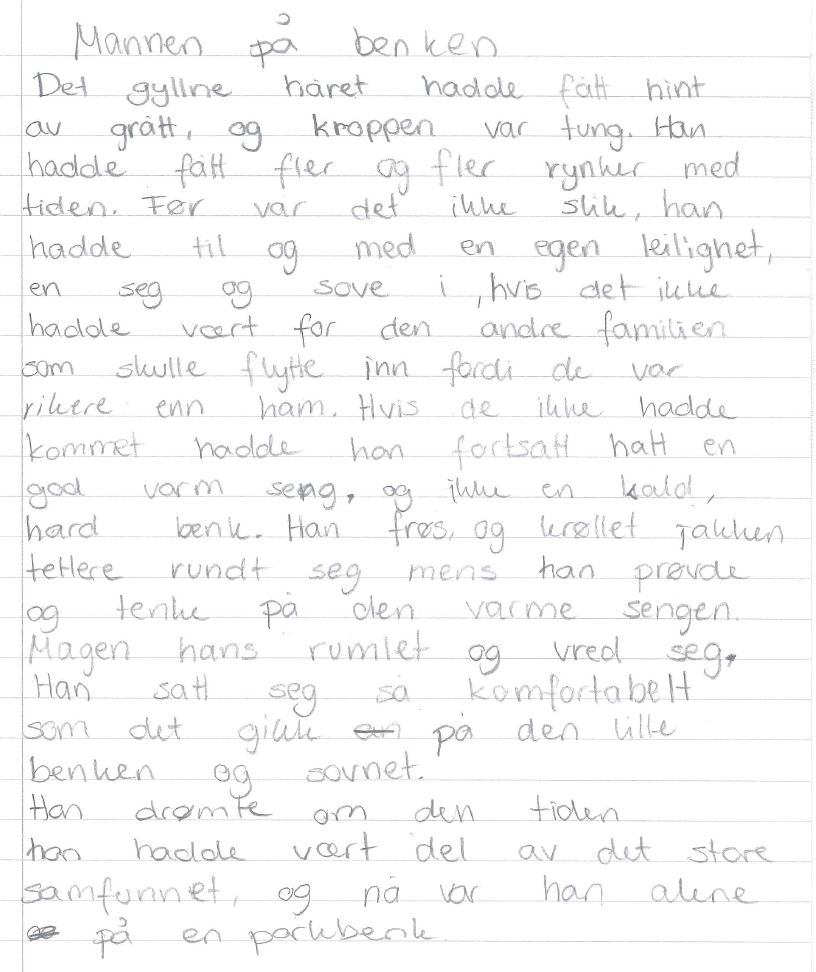 Mannen på benken
Det gyllne håret hadde fått hint
av grått, og kroppen var tung. Han
hadde fått fler og fler rynker med
tiden. Før var det ikke slik, han
hadde til og med en egen leilighet,
en seg og sove i, hvis det ikke
hadde vært for den andre familien
som skulle flytte inn fordi de var
rikere enn ham. Hvis de ikke hadde
kommet hadde han fortsatt hatt en
god varm seng, og ikke en kald,
hard benk. Han frøs, og krøllet jakken
tettere rundt seg mens han prøvde
og tenke på den varme sengen.
Magen hans rumlet og vred seg.
Han satt seg så komfortabelt
som det gikk på den lille
benken og sovnet.
Han drømte om den tiden
han hadde vært del av det store
samfunnet, og nå var han alene
på en parkbenk.